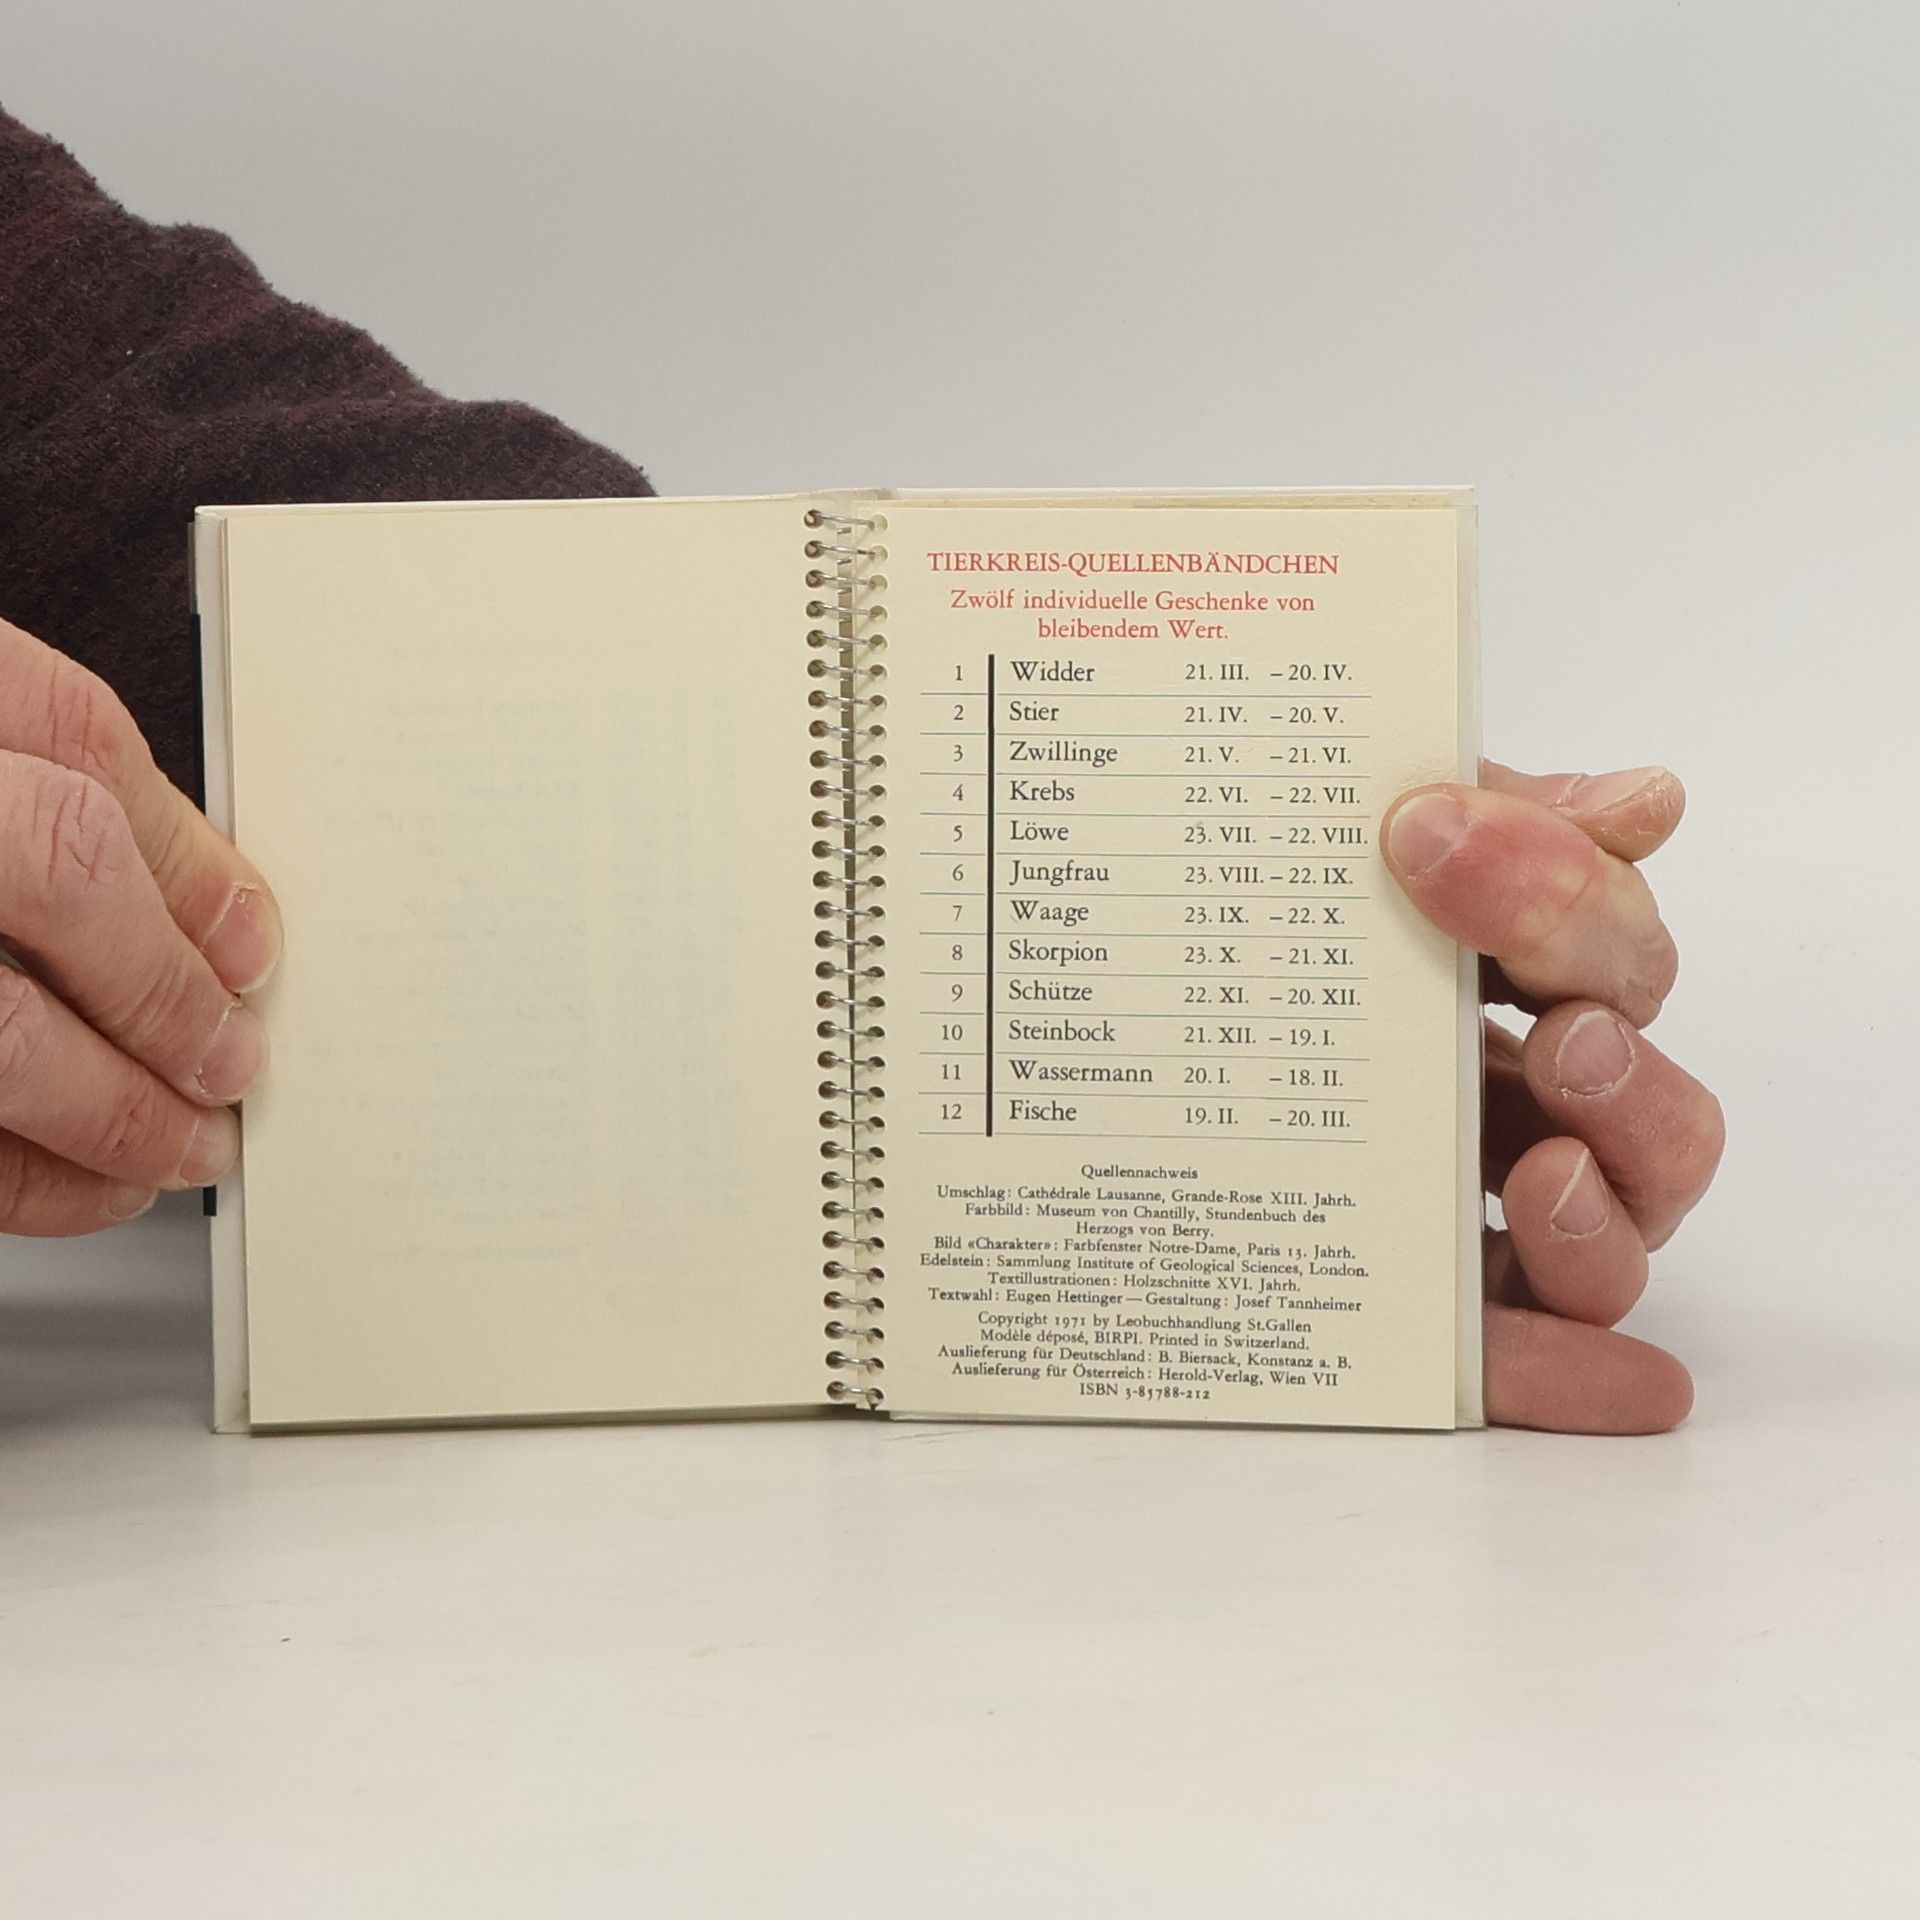 TIERKREIS-QUELLENBÄNDCHEN
Zwölf individuelle Geschenke von
bleibendem Wert.
1 Widder 21. III. – 20. IV.
2 Stier 21. IV. – 20. V.
3 Zwillinge 21. V. – 21. VI.
4 Krebs 22. VI. – 22. VII.
5 Löwe 23. VII. – 22. VIII.
6 Jungfrau 23. VIII. – 22. IX.
7 Waage 23. IX. – 22. X.
8 Skorpion 23. X. – 21. XI.
9 Schütze 22. XI. – 20. XII.
10 Steinbock 21. XII. – 19. I.
11 Wassermann 20. I. – 18. II.
12 Fische 19. II. – 20. III.
Quellennachweis
Umschlag: Cathédrale Lausanne, Grande-Rose XIII. Jahrh.
Farbbild: Museum von Chantilly, Stundenbuch des
Herzogs von Berry.
Bild «Charakter»: Farbfenster Notre-Dame, Paris 13. Jahrh.
Edelstein: Sammlung Institute of Geological Sciences, London.
Textillustrationen: Holzschnitte XVI. Jahrh.
Textwahl: Eugen Hettinger — Gestaltung: Josef Tannheimer
Copyright 1971 by Leobuchhandlung St.Gallen
Modèle déposé, BIRPI. Printed in Switzerland.
Auslieferung für Deutschland: B. Biersack, Konstanz a. B.
Auslieferung für Österreich: Herold-Verlag, Wien VII
ISBN 3-85788-212